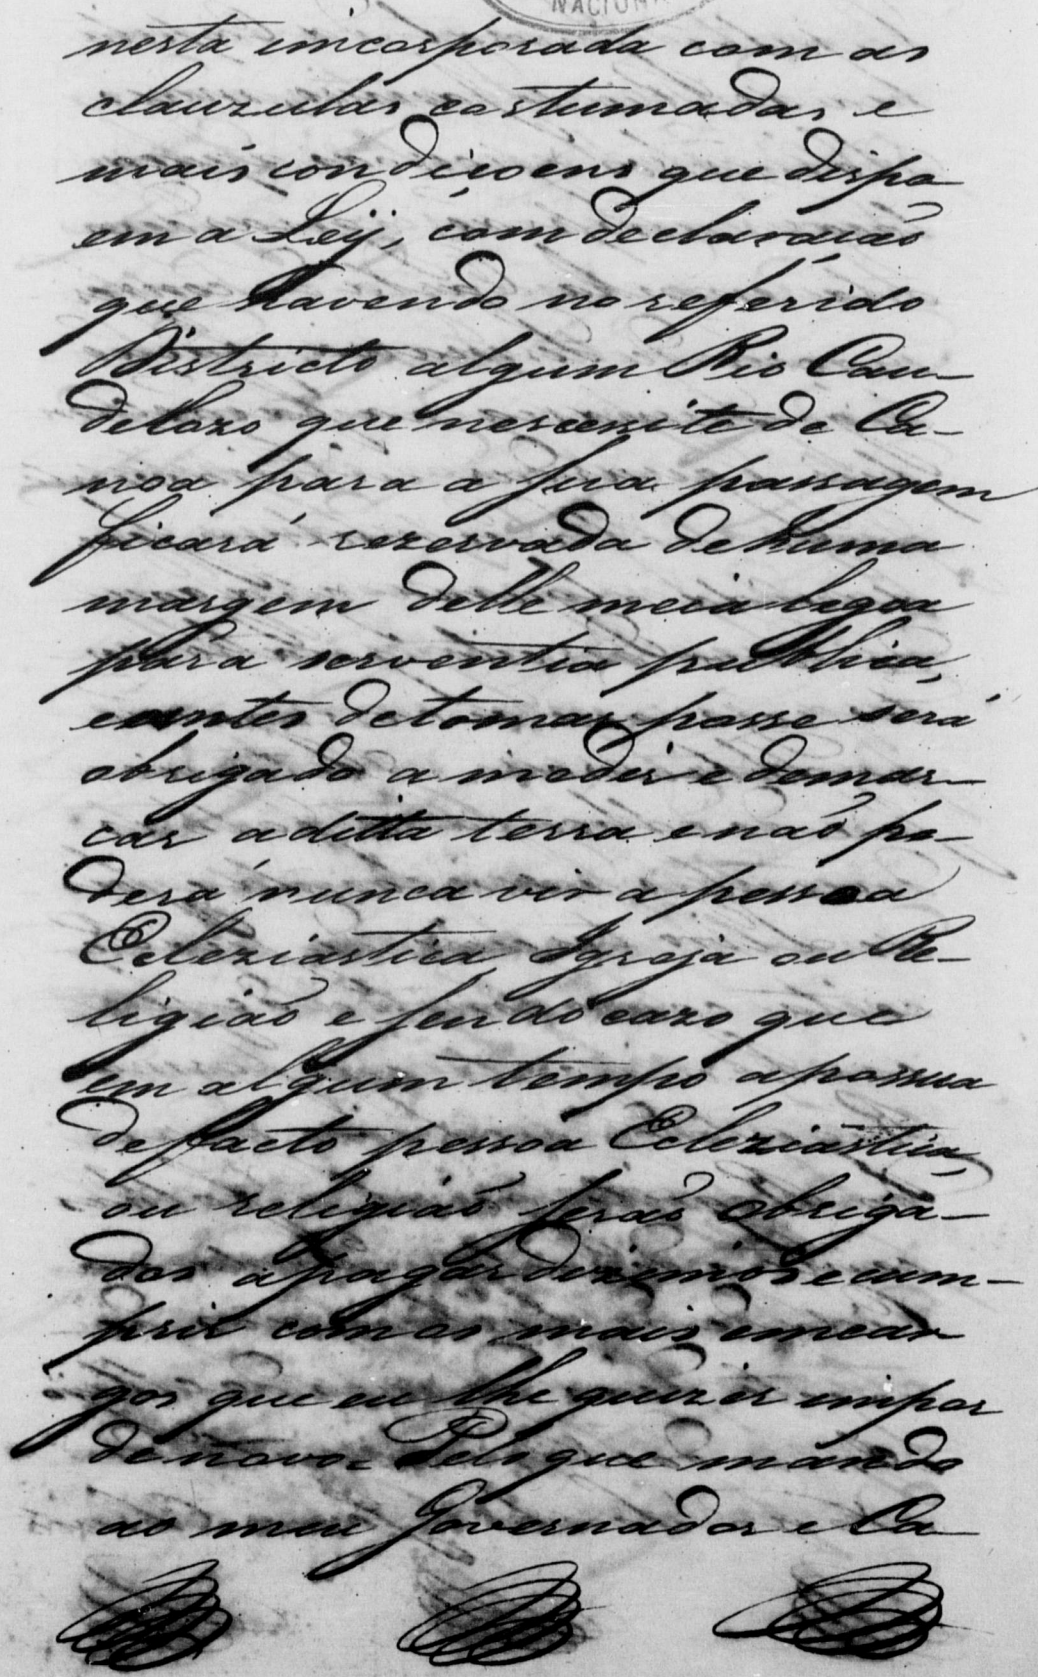 NACIONAL
nesta emcorporada com as
clauzulas costumadas e
mais condiçoens que dispo
em a Ley, com declaração
que havendo no referido
Districto algum Rio Cau-
delozo que nescessite de Ca-
noa para a sua passagem
ficará rezervada de huma
margem delle meia legoa
para serventia publica,
e antes de tomar posse será
obrigado a medir e demar-
car a ditta terra e não po-
derá nunca vir a pessoa
Ecleziastica Igreja ou Re-
ligião e sendo cazo que
em algum tempo a possua
de facto pessoa Ecleziastica,
ou religião serão obriga-
dos a pagar dizimos e cum-
prir com os mais emcar
gos que eu lhe quizer impor
de novo. Pelo que mando
ao meu Governador e Ca